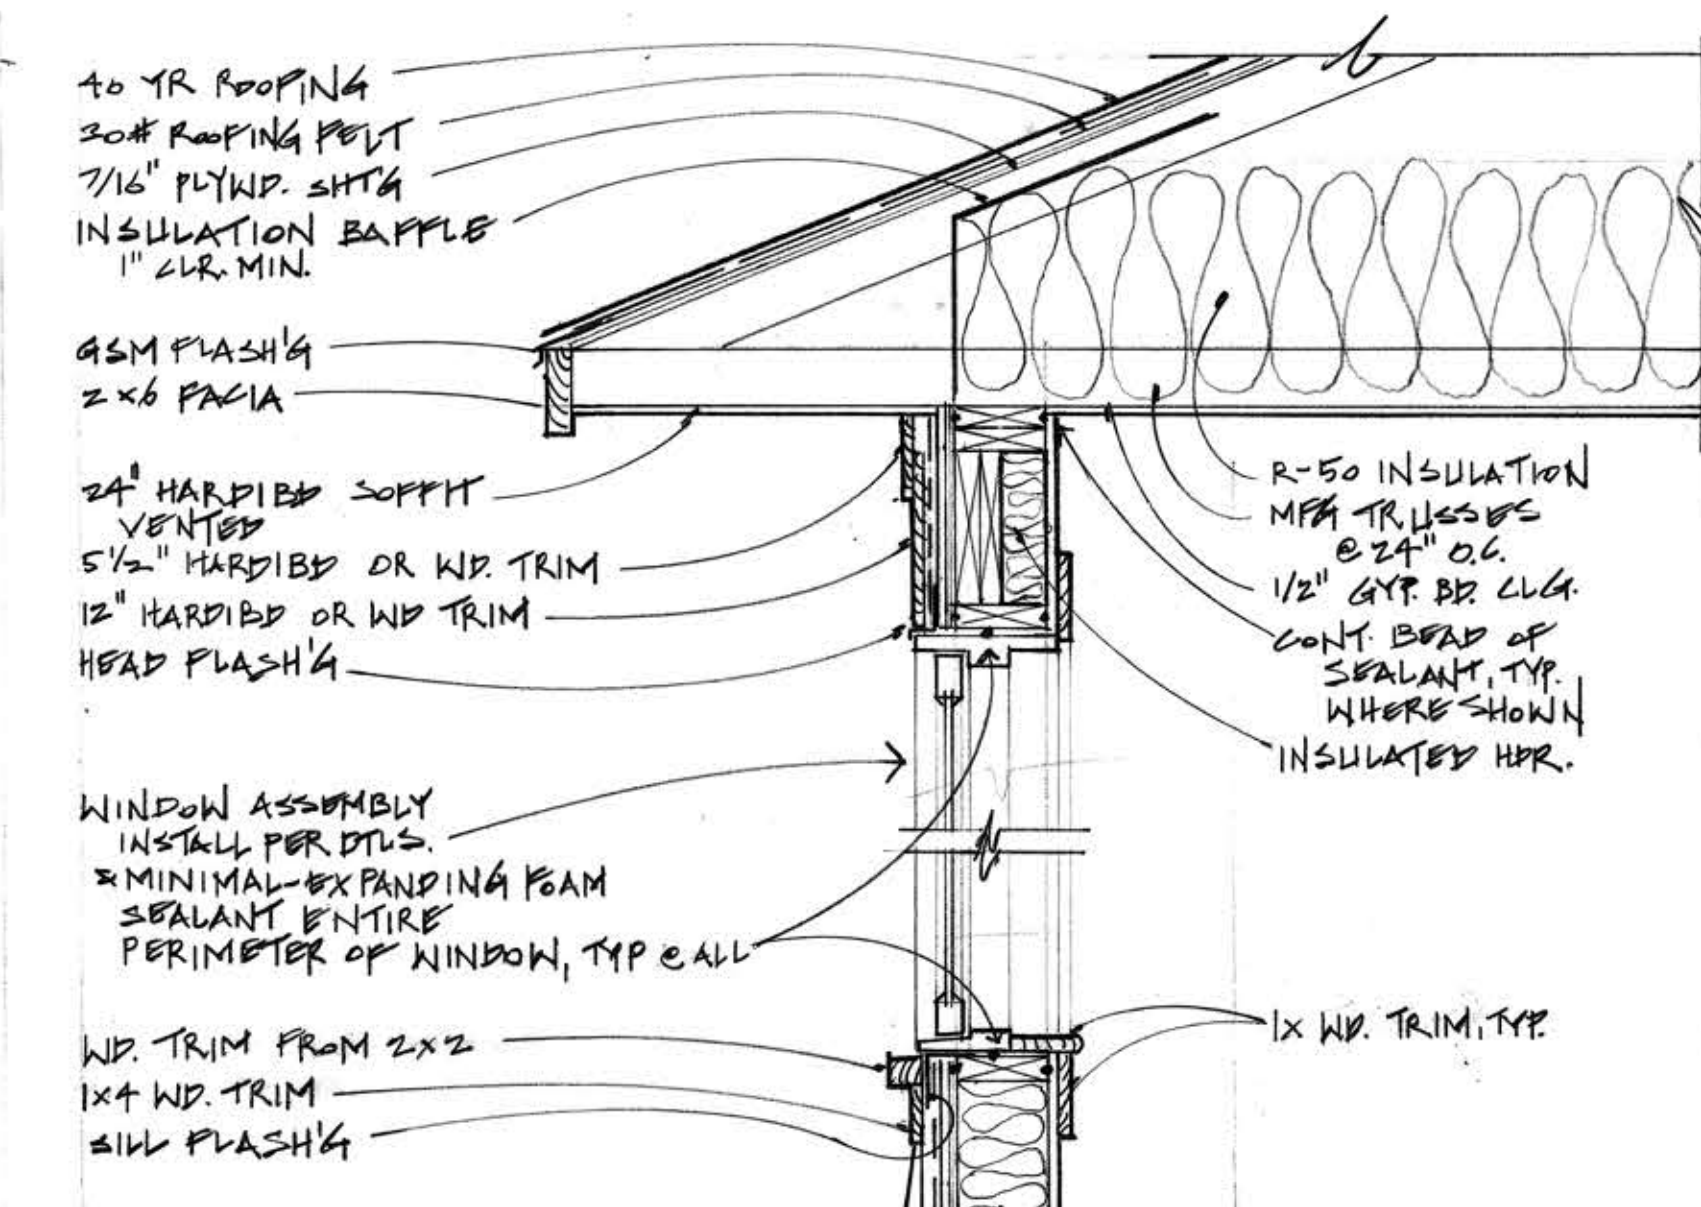 40 YR ROOFING
30# ROOFING FELT
7/16" PLYWD. SHT'G
INSULATION BAFFLE
1" CLR. MIN.
GSM FLASH'G
2x6 FACIA
24" HARDIBD SOFFIT
VENTED
5 1/2" HARDIBD OR WD. TRIM
12" HARDIBD OR WD TRIM
HEAD FLASH'G
WINDOW ASSEMBLY
INSTALL PER DTLS.
& MINIMAL-EXPANDING FOAM
SEALANT ENTIRE
PERIMETER OF WINDOW, TYP @ ALL
WD. TRIM FROM 2x2
1x4 WD. TRIM
SILL FLASH'G
R-50 INSULATION
MFG TRUSSES
@ 24" O.C.
1/2" GYP. BD. CLG.
CONT. BEAD OF
SEALANT, TYP.
WHERE SHOWN
INSULATED HDR.
1x WD. TRIM, TYP.